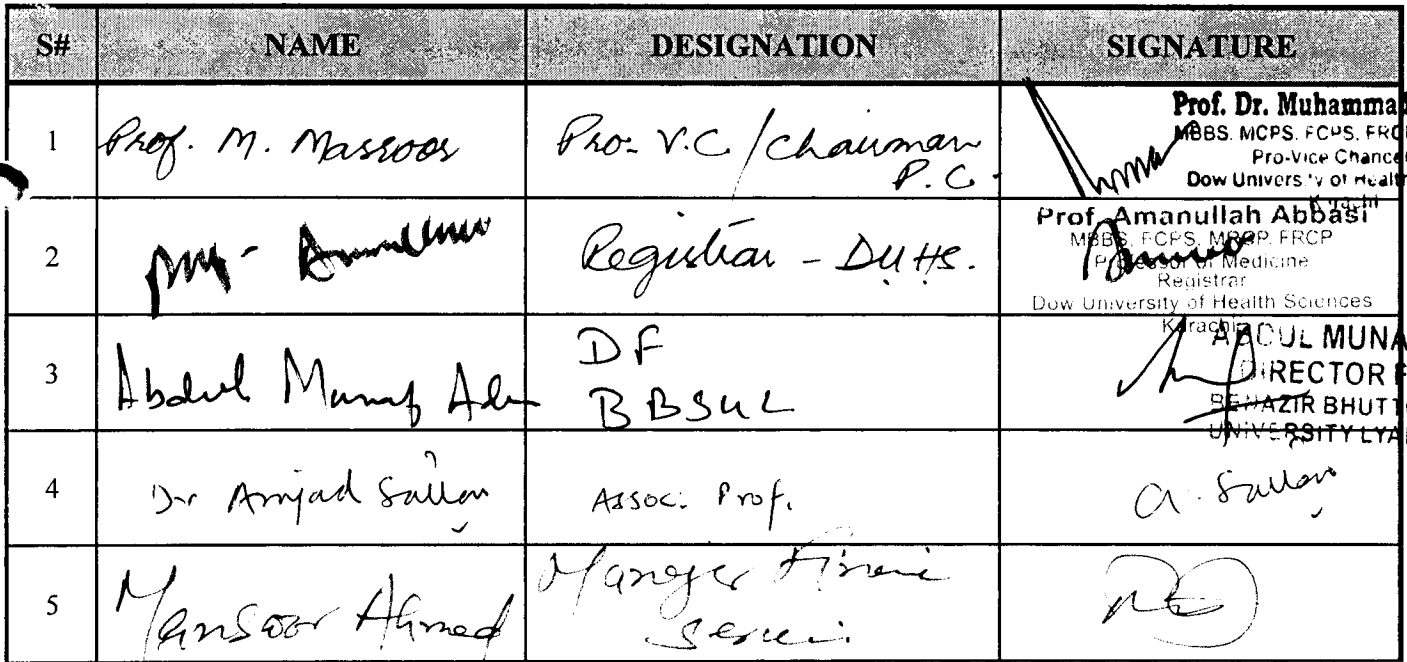 S# NAME DESIGNATION SIGNATURE
1 Prof. M. Masroor Pro- V.C/Chairman
P.C.
Prof. Dr. Muhammad
MBBS. MCPS. FCPS. FRC
Pro-Vice Chance
Dow University of Healt
Karachi
2 Registrar - DUHS.
Prof. Amanullah Abbasi
MBBS, FCPS, MRCP, FRCP
Professor of Medicine
Registrar
Dow University of Health Sciences
Karachi
3 Abdul Munaf DF
BBSUL
ABDUL MUNA
DIRECTOR F
BENAZIR BHUTT
UNIVERSITY LYA
4 Dr Amjad Assoc. Prof.
5 Mansoor Ahmed Manager